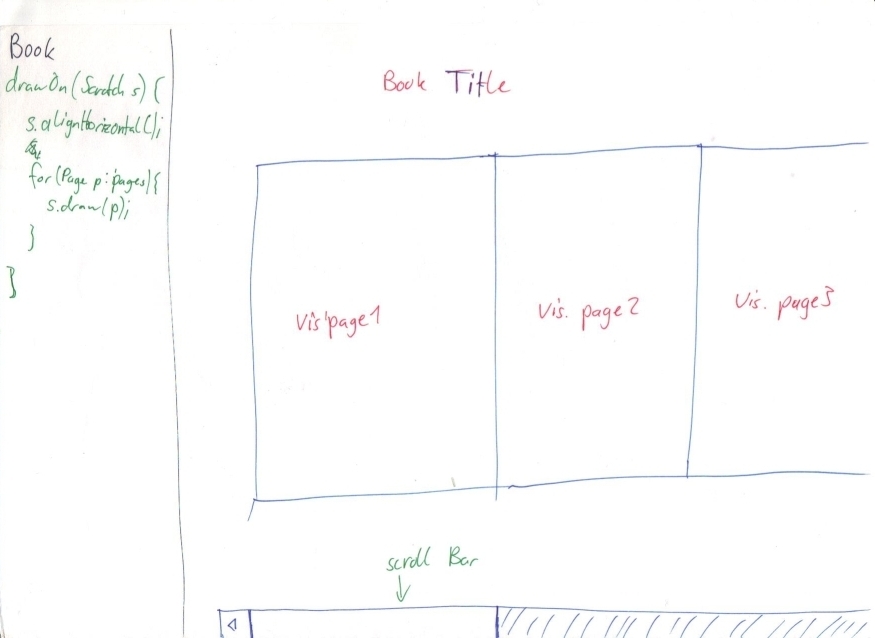 Book
drawOn(Scratch s) {
s.alignHorizontal();
for(Page p : pages){
s.draw(p);
}
}
Book Title
Vis'page1
Vis. page2
Vis. page3
scroll Bar